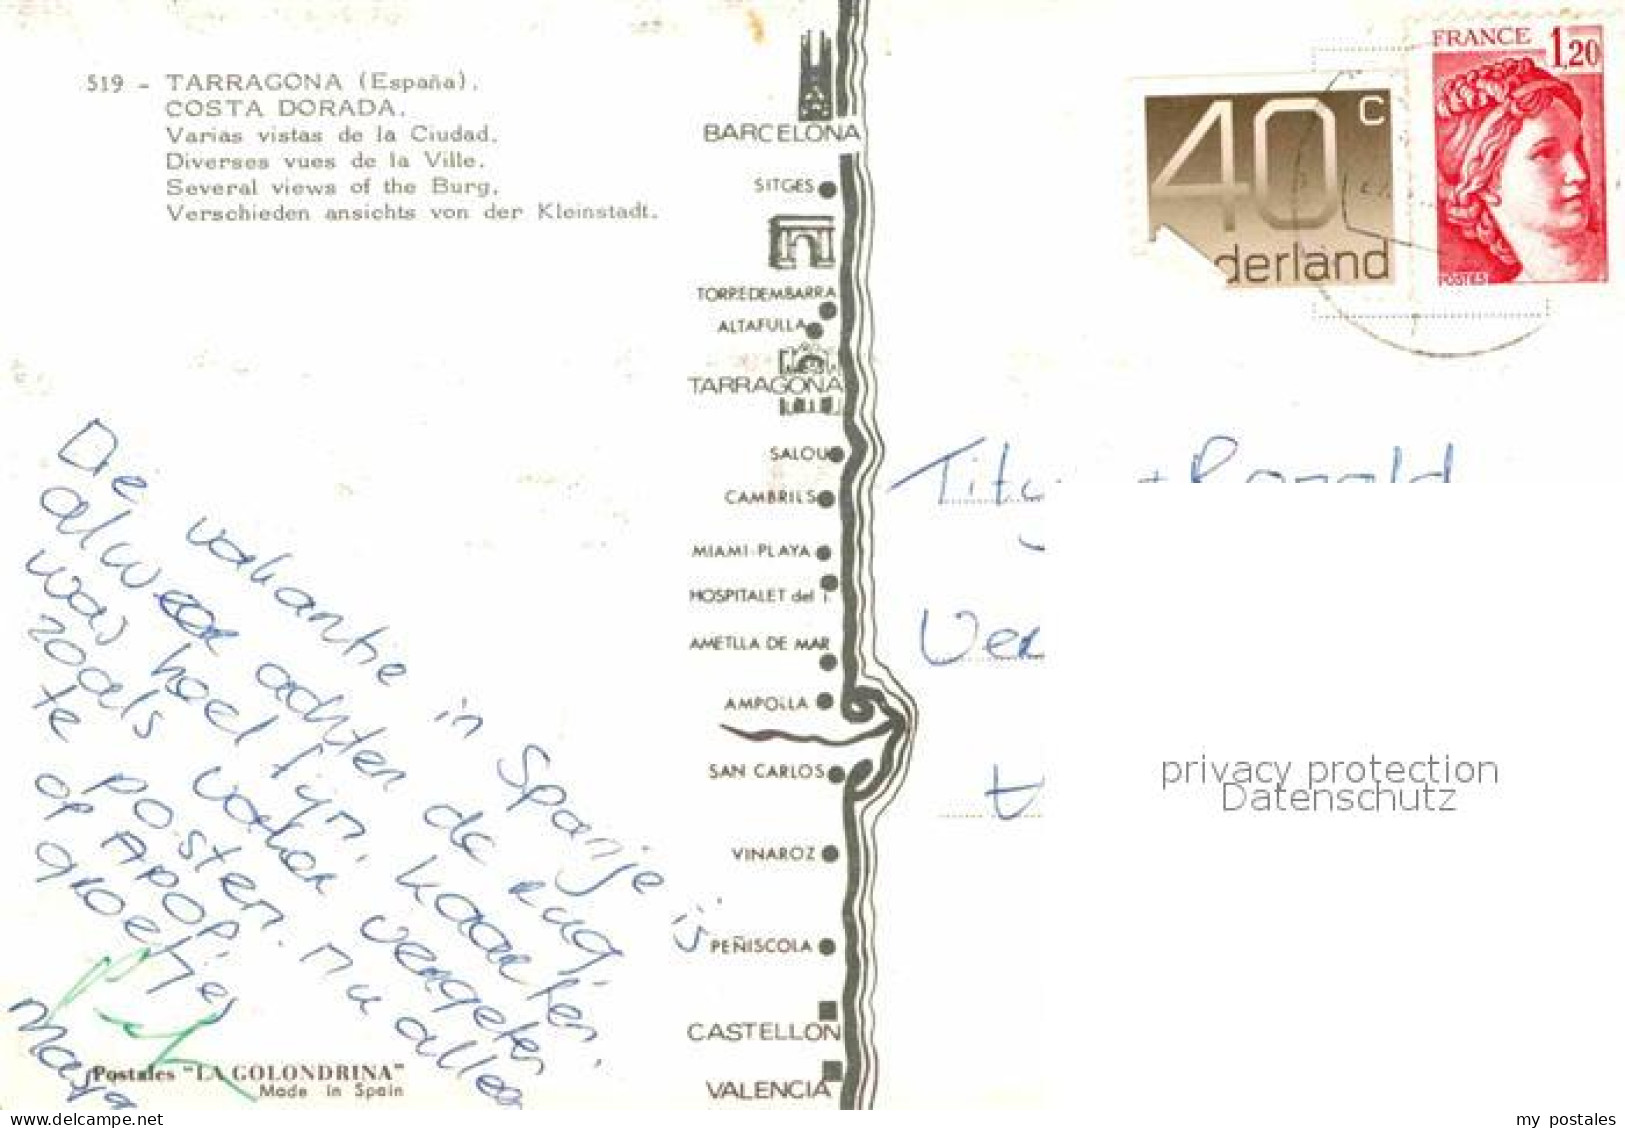 519 - TARRAGONA (España).
COSTA DORADA.
Varias vistas de la Ciudad.
Diverses vues de la Ville.
Several views of the Burg.
Verschieden ansichts von der Kleinstadt.
De vakantie in Spanje is
alweer achter de rug,
was heel fijn. Kaarten
zoals vaker vergeten
te posten. nu alleen
op Apof.
groetjes
Postales "LA GOLONDRINA"
Made in Spain
BARCELONA
SITGES
TORREDEMBARRA
ALTAFULLA
TARRAGONA
SALOU
CAMBRILS
MIAMI-PLAYA
HOSPITALET del I.
AMETLLA DE MAR
AMPOLLA
SAN CARLOS
VINAROZ
PEÑISCOLA
CASTELLON
VALENCIA
40 c
derland
FRANCE 1,20
POSTES
+ Ronald
privacy protection
Datenschutz
my postales